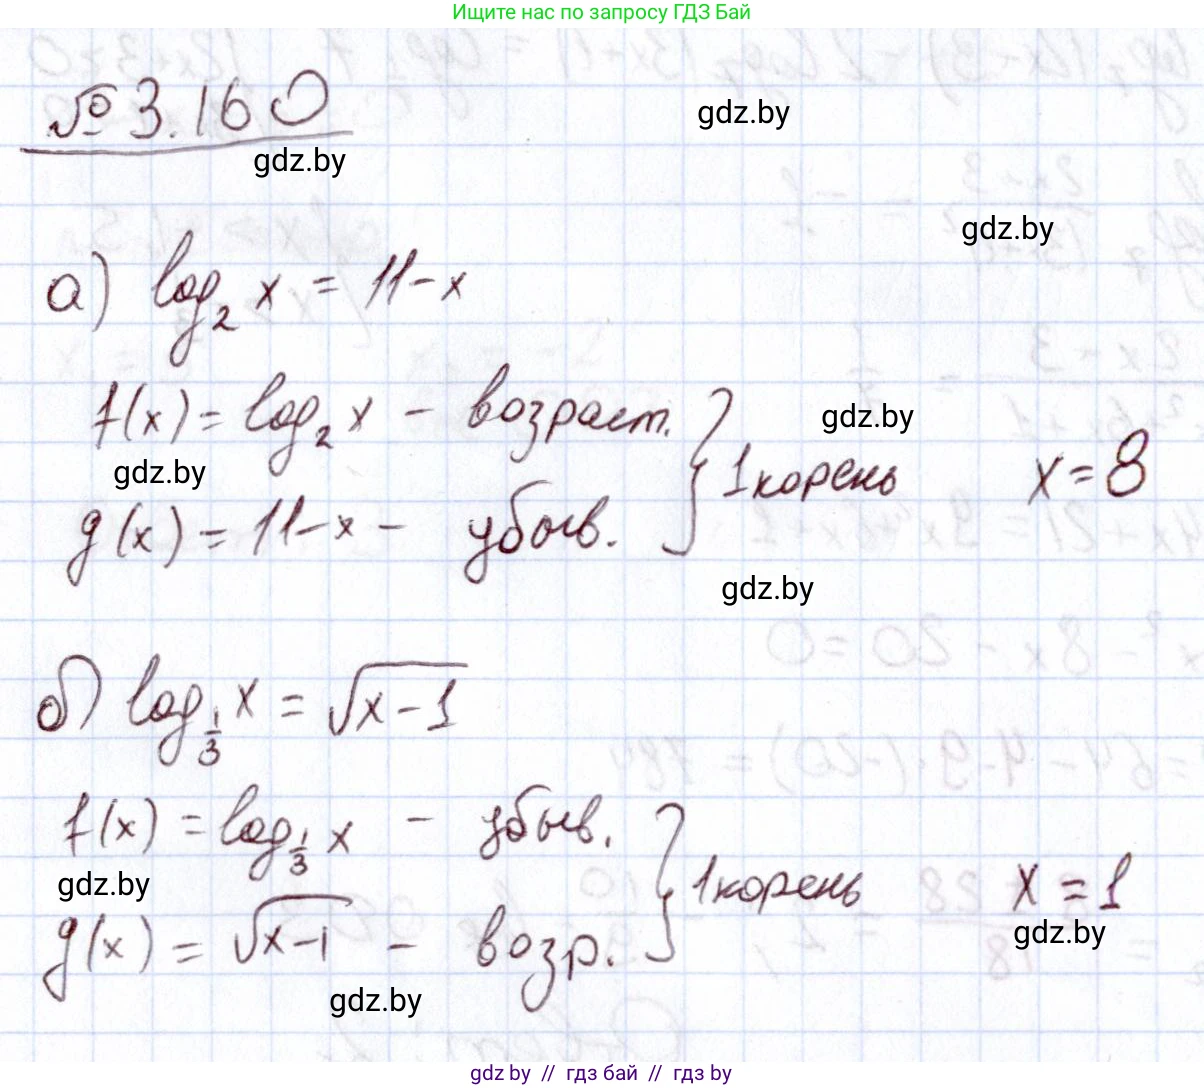 Ищите нас по запросу ГДЗ Бай
№ 3.160
gdz.by
gdz.by
gdz.by
а) log₂ x = 11 - x
f(x) = log₂ x - возраст. } 1 корень x = 8
gdz.by
gdz.by
g(x) = 11 - x - убыв.
gdz.by
б) log_{1/3} x = √(x - 1)
f(x) = log_{1/3} x - убыв. } 1 корень x = 1
gdz.by
gdz.by
g(x) = √(x-1) - возр.
gdz.by
gdz.by // гдз бай // гдз by